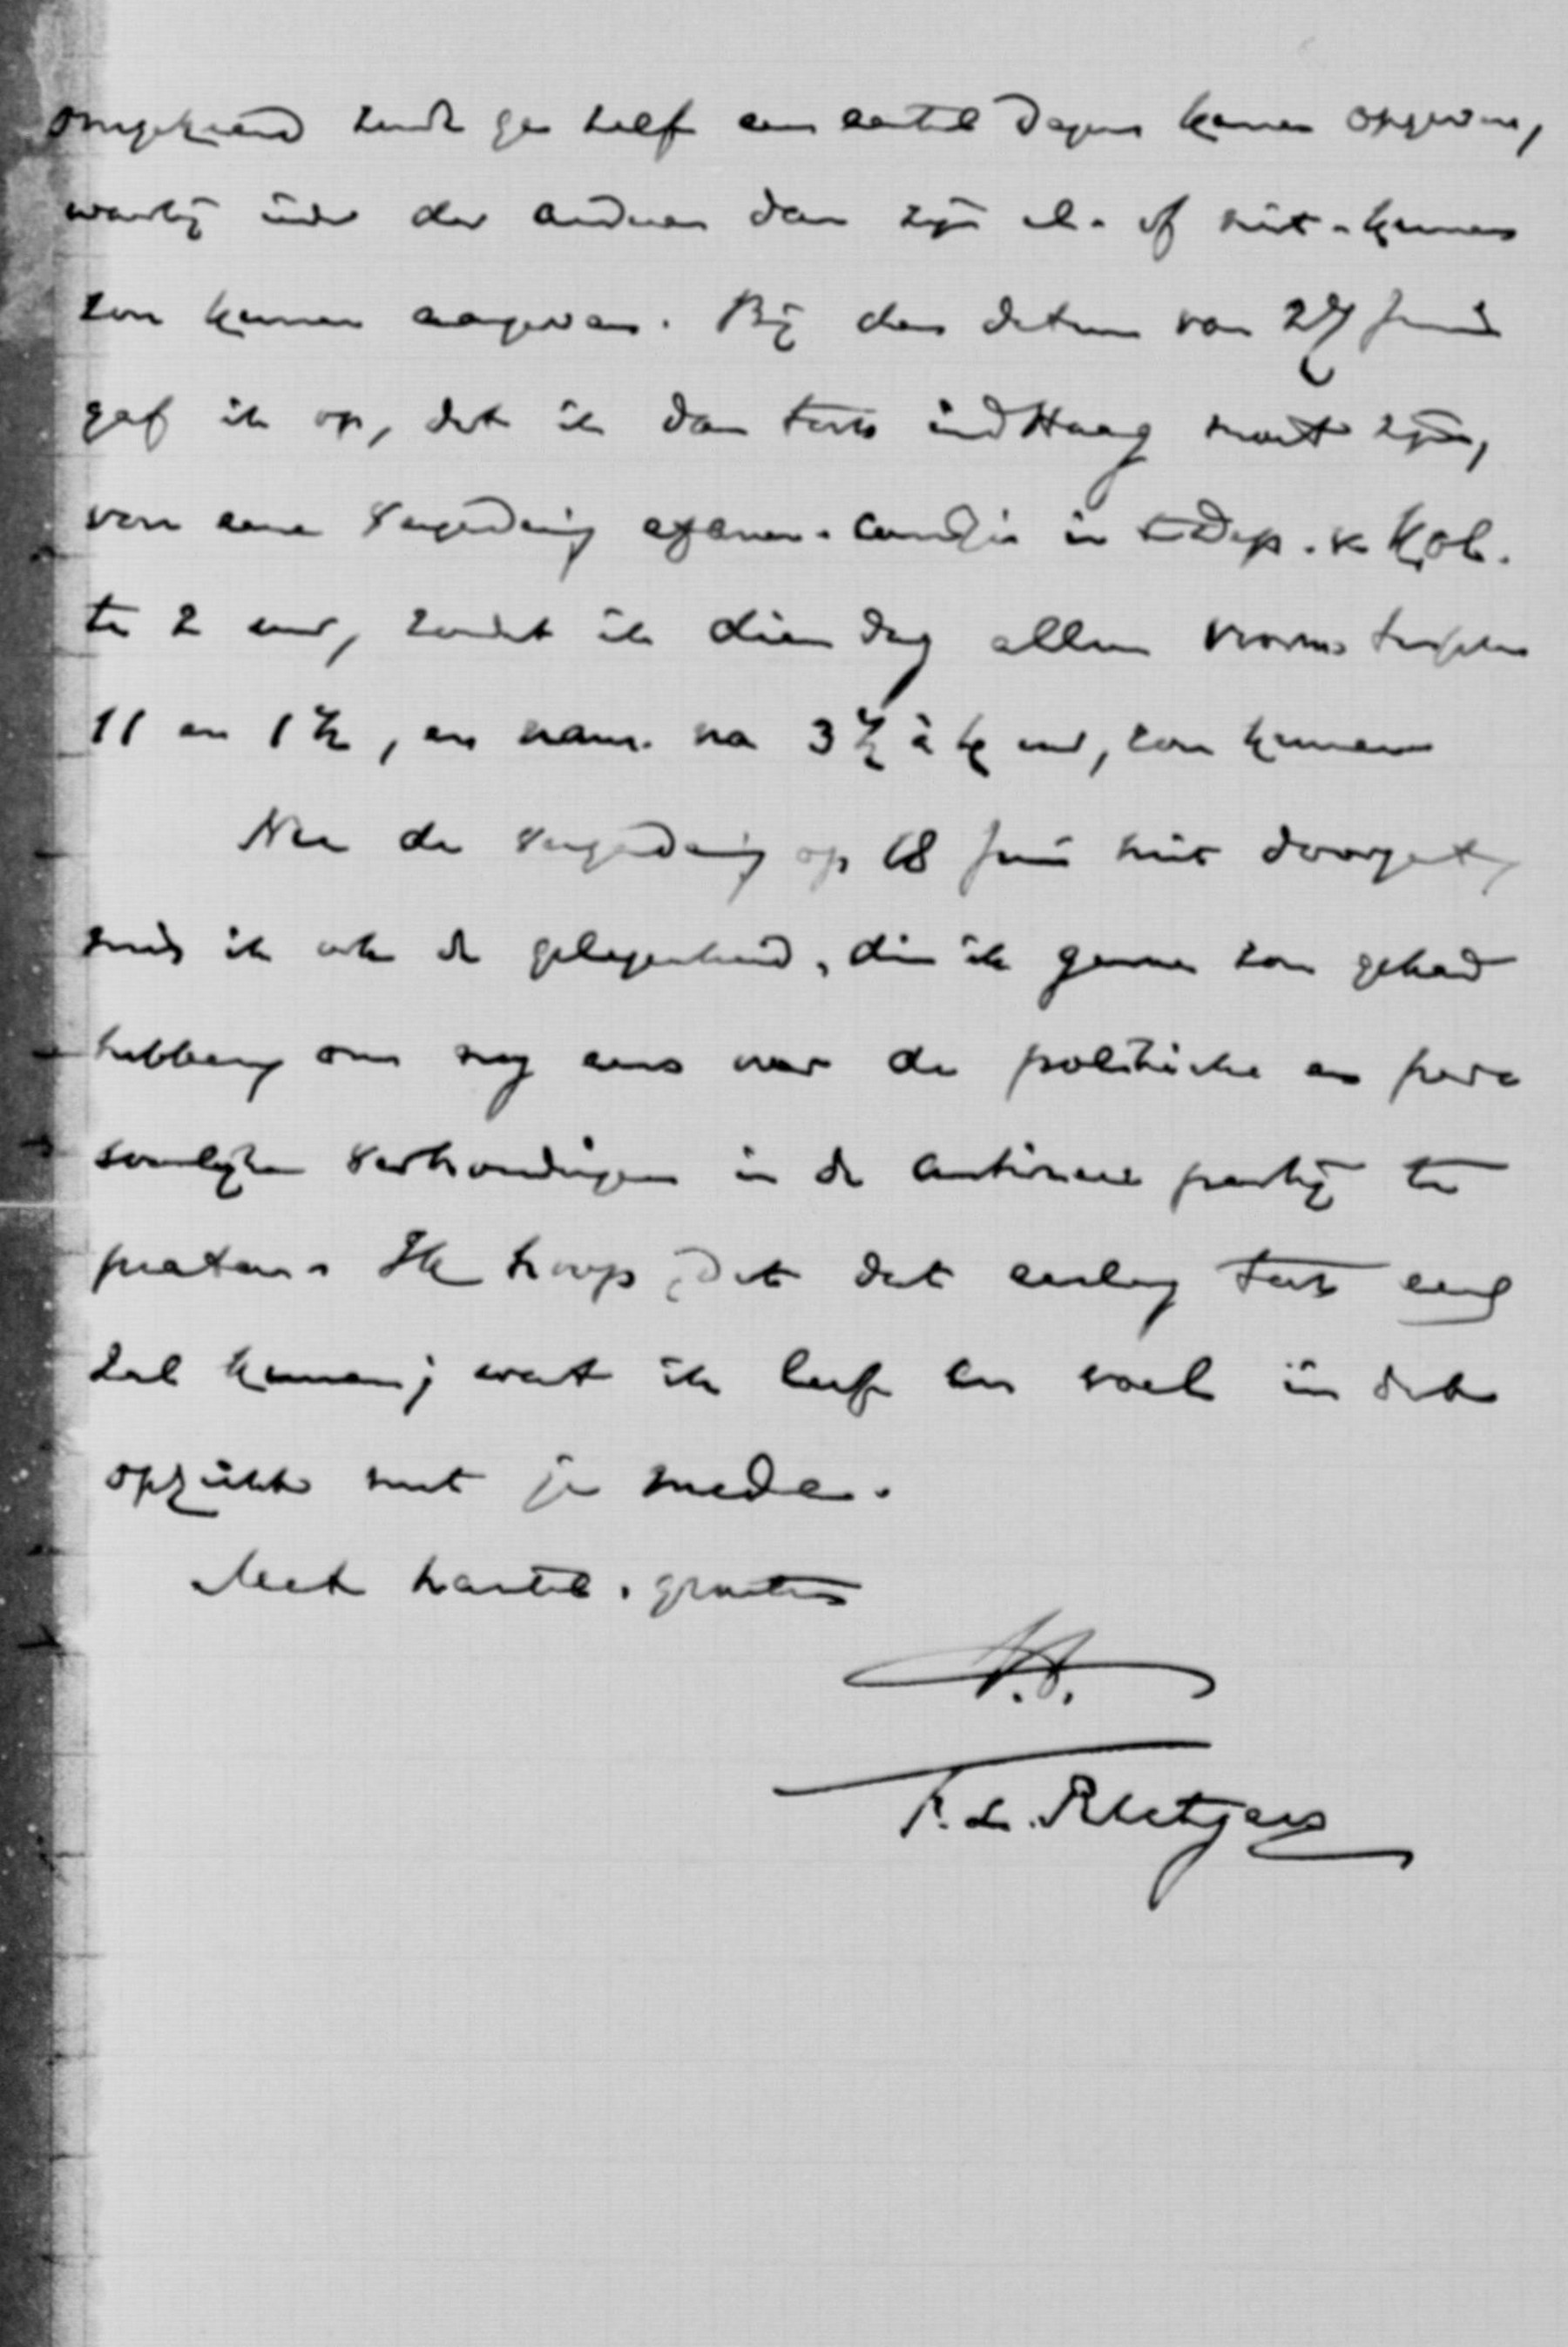 omgekeerd zoudt ge zelf een aantal dagen kunnen opgeven,
waarbij ieder der anderen dan zijn al- of niet-kunnen
zou kunnen aangeven. Bij den datum van 27 Juni
gaf ik op, dat ik dan toch in d Haag moet zijn,
voor eene vergadering examen-comssie in 't Dep. v. Kol.
te 2 uur, zoodat ik dien dag alleen voorm. tusschen
11 en 1 1/2, en nam. na 3 1/2 à 4 uur, zou kunnen
Nu de vergadering op 18 Juni niet doorgaat,
mis ik ook de gelegenheid, die ik gaarne zou gehad
hebben, om nog eens over de politieke en per-
soonlijke verhoudingen in de antirev. partij te
praten. Ik hoop, dat dat eerlang toch eens
zal kunnen; want ik leef zoo veel in dat
opzicht met je mede.
Met hartel. groeten
t.t.
F. L. Rutgers